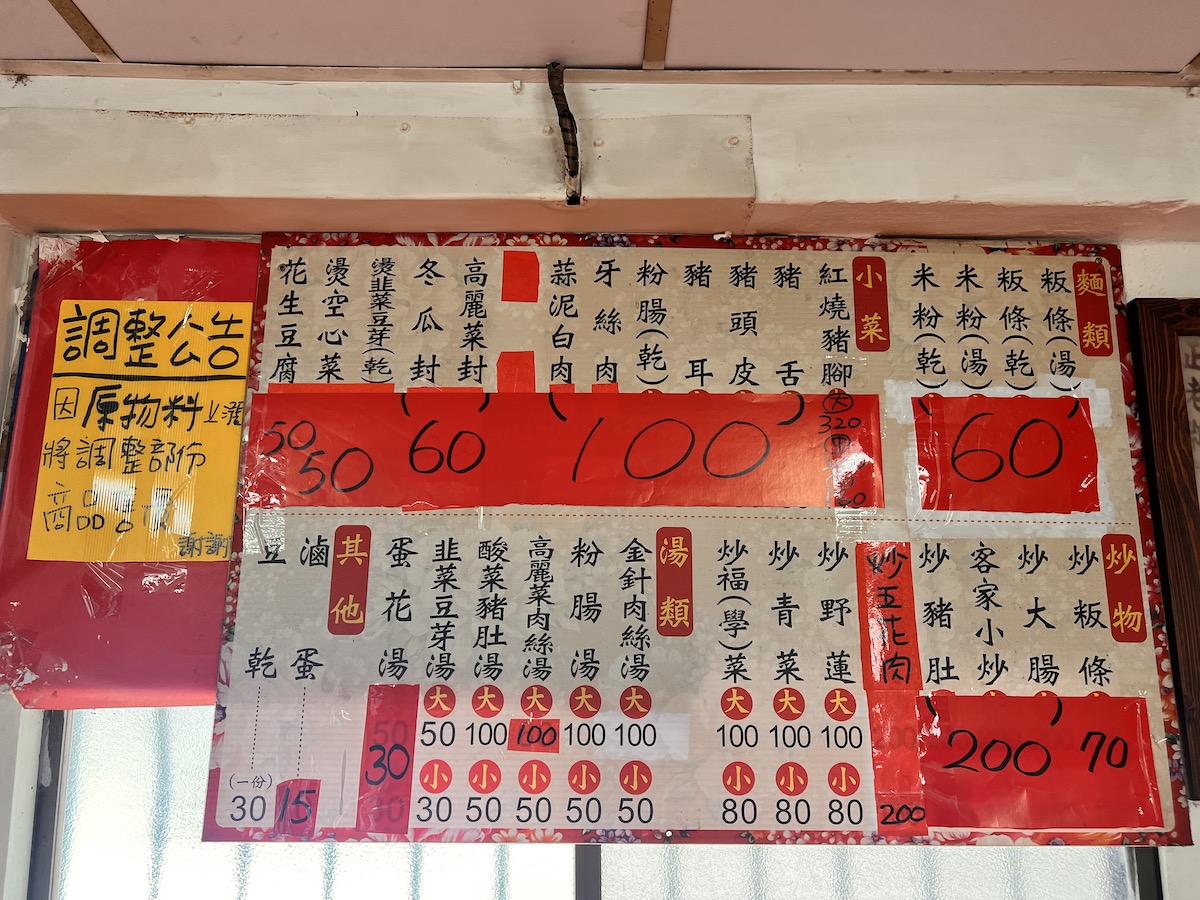 麵類
粄條(湯)
粄條(乾)
米粉(湯)
米粉(乾)
60
小菜
紅燒豬腳
大
320
豬舌
豬頭皮
豬耳
粉腸(乾)
牙絲肉
蒜泥白肉
(100)
高麗菜封
冬瓜封
(60)
燙韭菜豆芽(乾)
燙空心菜
花生豆腐
50
50
炒物
炒粄條
70
炒大腸
客家小炒
炒豬肚
(200)
炒五花肉
200
炒野蓮
大
100
小
80
炒青菜
大
100
小
80
炒福(學)菜
大
100
小
80
湯類
金針肉絲湯
大
100
小
50
粉腸湯
大
100
小
50
高麗菜肉絲湯
大
100
小
50
酸菜豬肚湯
大
100
小
50
韭菜豆芽湯
大
50
小
30
蛋花湯
30
其他
滷蛋
15
豆乾
(一份)
30
調整公告
因原物料上漲
將調整部份
商品售
謝謝